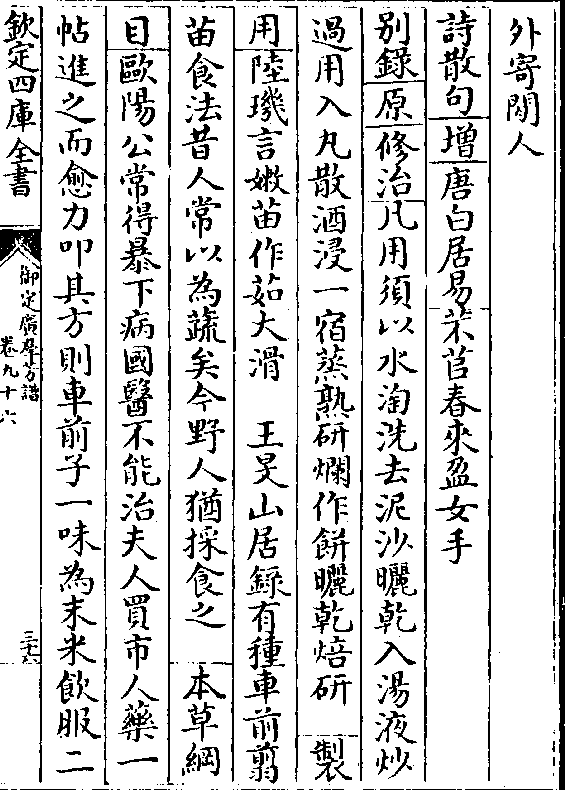 外寄閑人
詩散句增唐白居易芣苢春來盈女手
别錄原修治凡用須以水淘洗去泥沙曬乾入湯液炒
過用入丸散酒浸一宿蒸熟研爛作餅曬乾焙研　製
用陸璣言嫩苗作茹大滑　王旻山居錄有種車前剪
苗食法昔人常以為蔬矣今野人猶採食之　本草綱
目歐陽公常得暴下病國醫不能治夫人買市人藥一
帖進之而愈力叩其方則車前子一味為末米飲服二
欽定四庫全書
御定廣羣芳譜
卷九十六
三十六